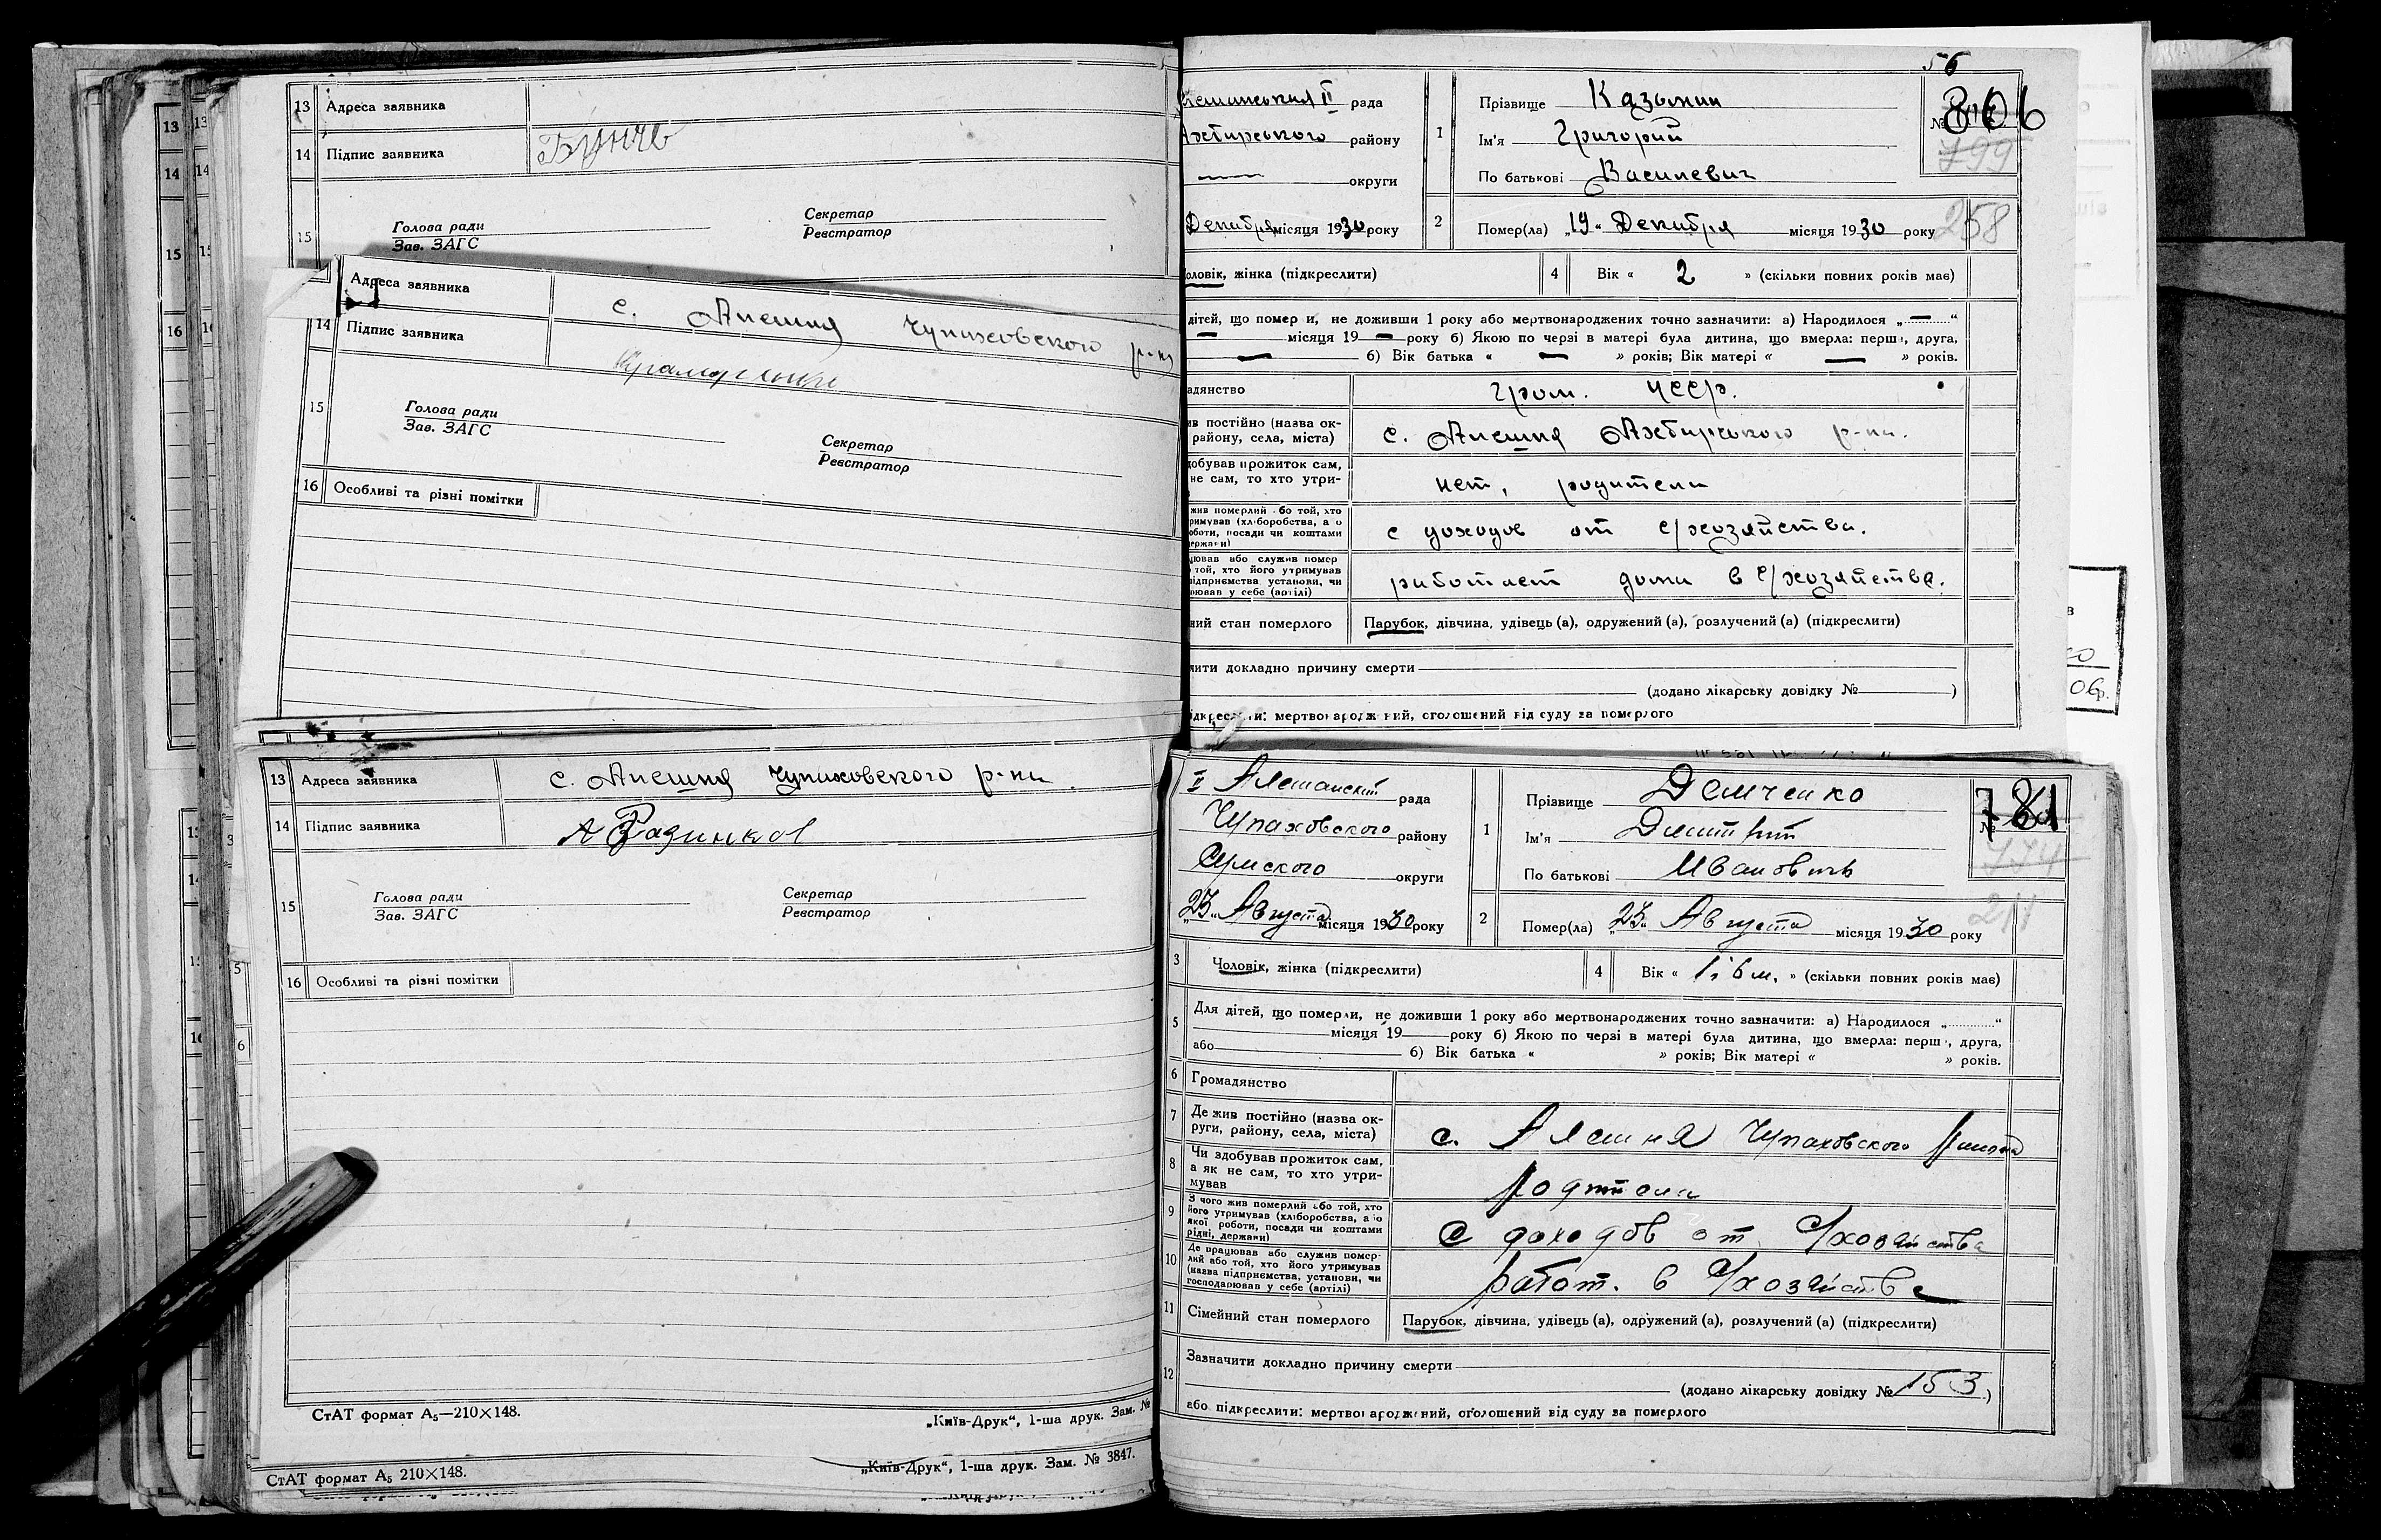 13 Адреса заявника
14 Підпис заявника
15 Голова ради
Зав. ЗАГС
Секретар
Реєстратор
Адреса заявника с. Алешня Чупаховского р-на
14 Підпис заявника
15 Голова ради
Зав. ЗАГС
Секретар
Реєстратор
16 Особливі та різні помітки
13 Адреса заявника с. Алешня Чупаховского р-на
14 Підпис заявника
15 Голова ради
Зав. ЗАГС
Секретар
Реєстратор
16 Особливі та різні помітки
СтАТ формат А5—210×148.
„Київ-Друк“, 1-ша друк. Зам. №
СтАТ формат А5 210×148.
„Київ-Друк“, 1-ша друк. Зам. № 3847.
56
рада
района
Ахтирського району
округи
Декабря місяця 1930 року
1 Прізвище Казьмин
Ім'я Григорий
По батькові Васильевич
№ 806
799
2 Помер(ла) „19“ Декабря місяця 1930 року
258
жінка (підкреслити)
4 Вік « 2 » (скільки повних років має)
дітей, що помер и, не доживши 1 року або мертвонароджених точно зазначити: а) Народилося „ — “
— місяця 19 — року б) Якою по черзі в матері була дитина, що вмерла: перш , друга,
— б) Вік батька « — » років; Вік матері « — » років.
гром. УССР.
постійно (назва ок-
району, села, міста)
с. Алешня Ахтирського р-на.
прожиток сам,
не сам, то хто утри-
нет, родители
с доходов от с/хозяйства.
работает дома в с/хозяйстве.
стан померлого
Парубок, дівчина, удівець (а), одружений (а), розлучений (а) (підкреслити)
докладно причину смерти
(додано лікарську довідку № )
мертвонароджений, оголошений від суду за померлого
II Алешанский рада
Чупаховского району
Сумского округи
„23“ Августа місяця 1930 року
1 Прізвище Демченко
Ім'я Дмитрий
По батькові Иванович
№ 781
774
2 Помер(ла) „23“ Августа місяця 1930 року
211
3 Чоловік, жінка (підкреслити)
4 Вік « 1 і 6 м. » (скільки повних років має)
5 Для дітей, що померли, не доживши 1 року або мертвонароджених точно зазначити: а) Народилося „ “
місяця 19 року б) Якою по черзі в матері була дитина, що вмерла: перш , друга,
або б) Вік батька « » років; Вік матері « » років.
6 Громадянство
7 Де жив постійно (назва ок-
руги, району, села, міста)
с. Алешня Чупаховского района
8 Чи здобував прожиток сам,
а як не сам, то хто утри-
мував
родители
9 З чого жив померлий або той, хто
його утримував (хліборобства, або
якої роботи, посади чи коштами
рідні, держави)
С доходов от с/хозяйства
10 Де працював або служив помер-
лий або той, хто його утримував
(назва підприємства, установи, чи
господарював у себе (артілі)
работ. в с/хозяйстве
11 Сімейний стан померлого
Парубок, дівчина, удівець (а), одружений (а), розлучений (а) (підкреслити)
12 Зазначити докладно причину смерти
(додано лікарську довідку № 153 )
або підкреслити: мертвонароджений, оголошений від суду за померлого